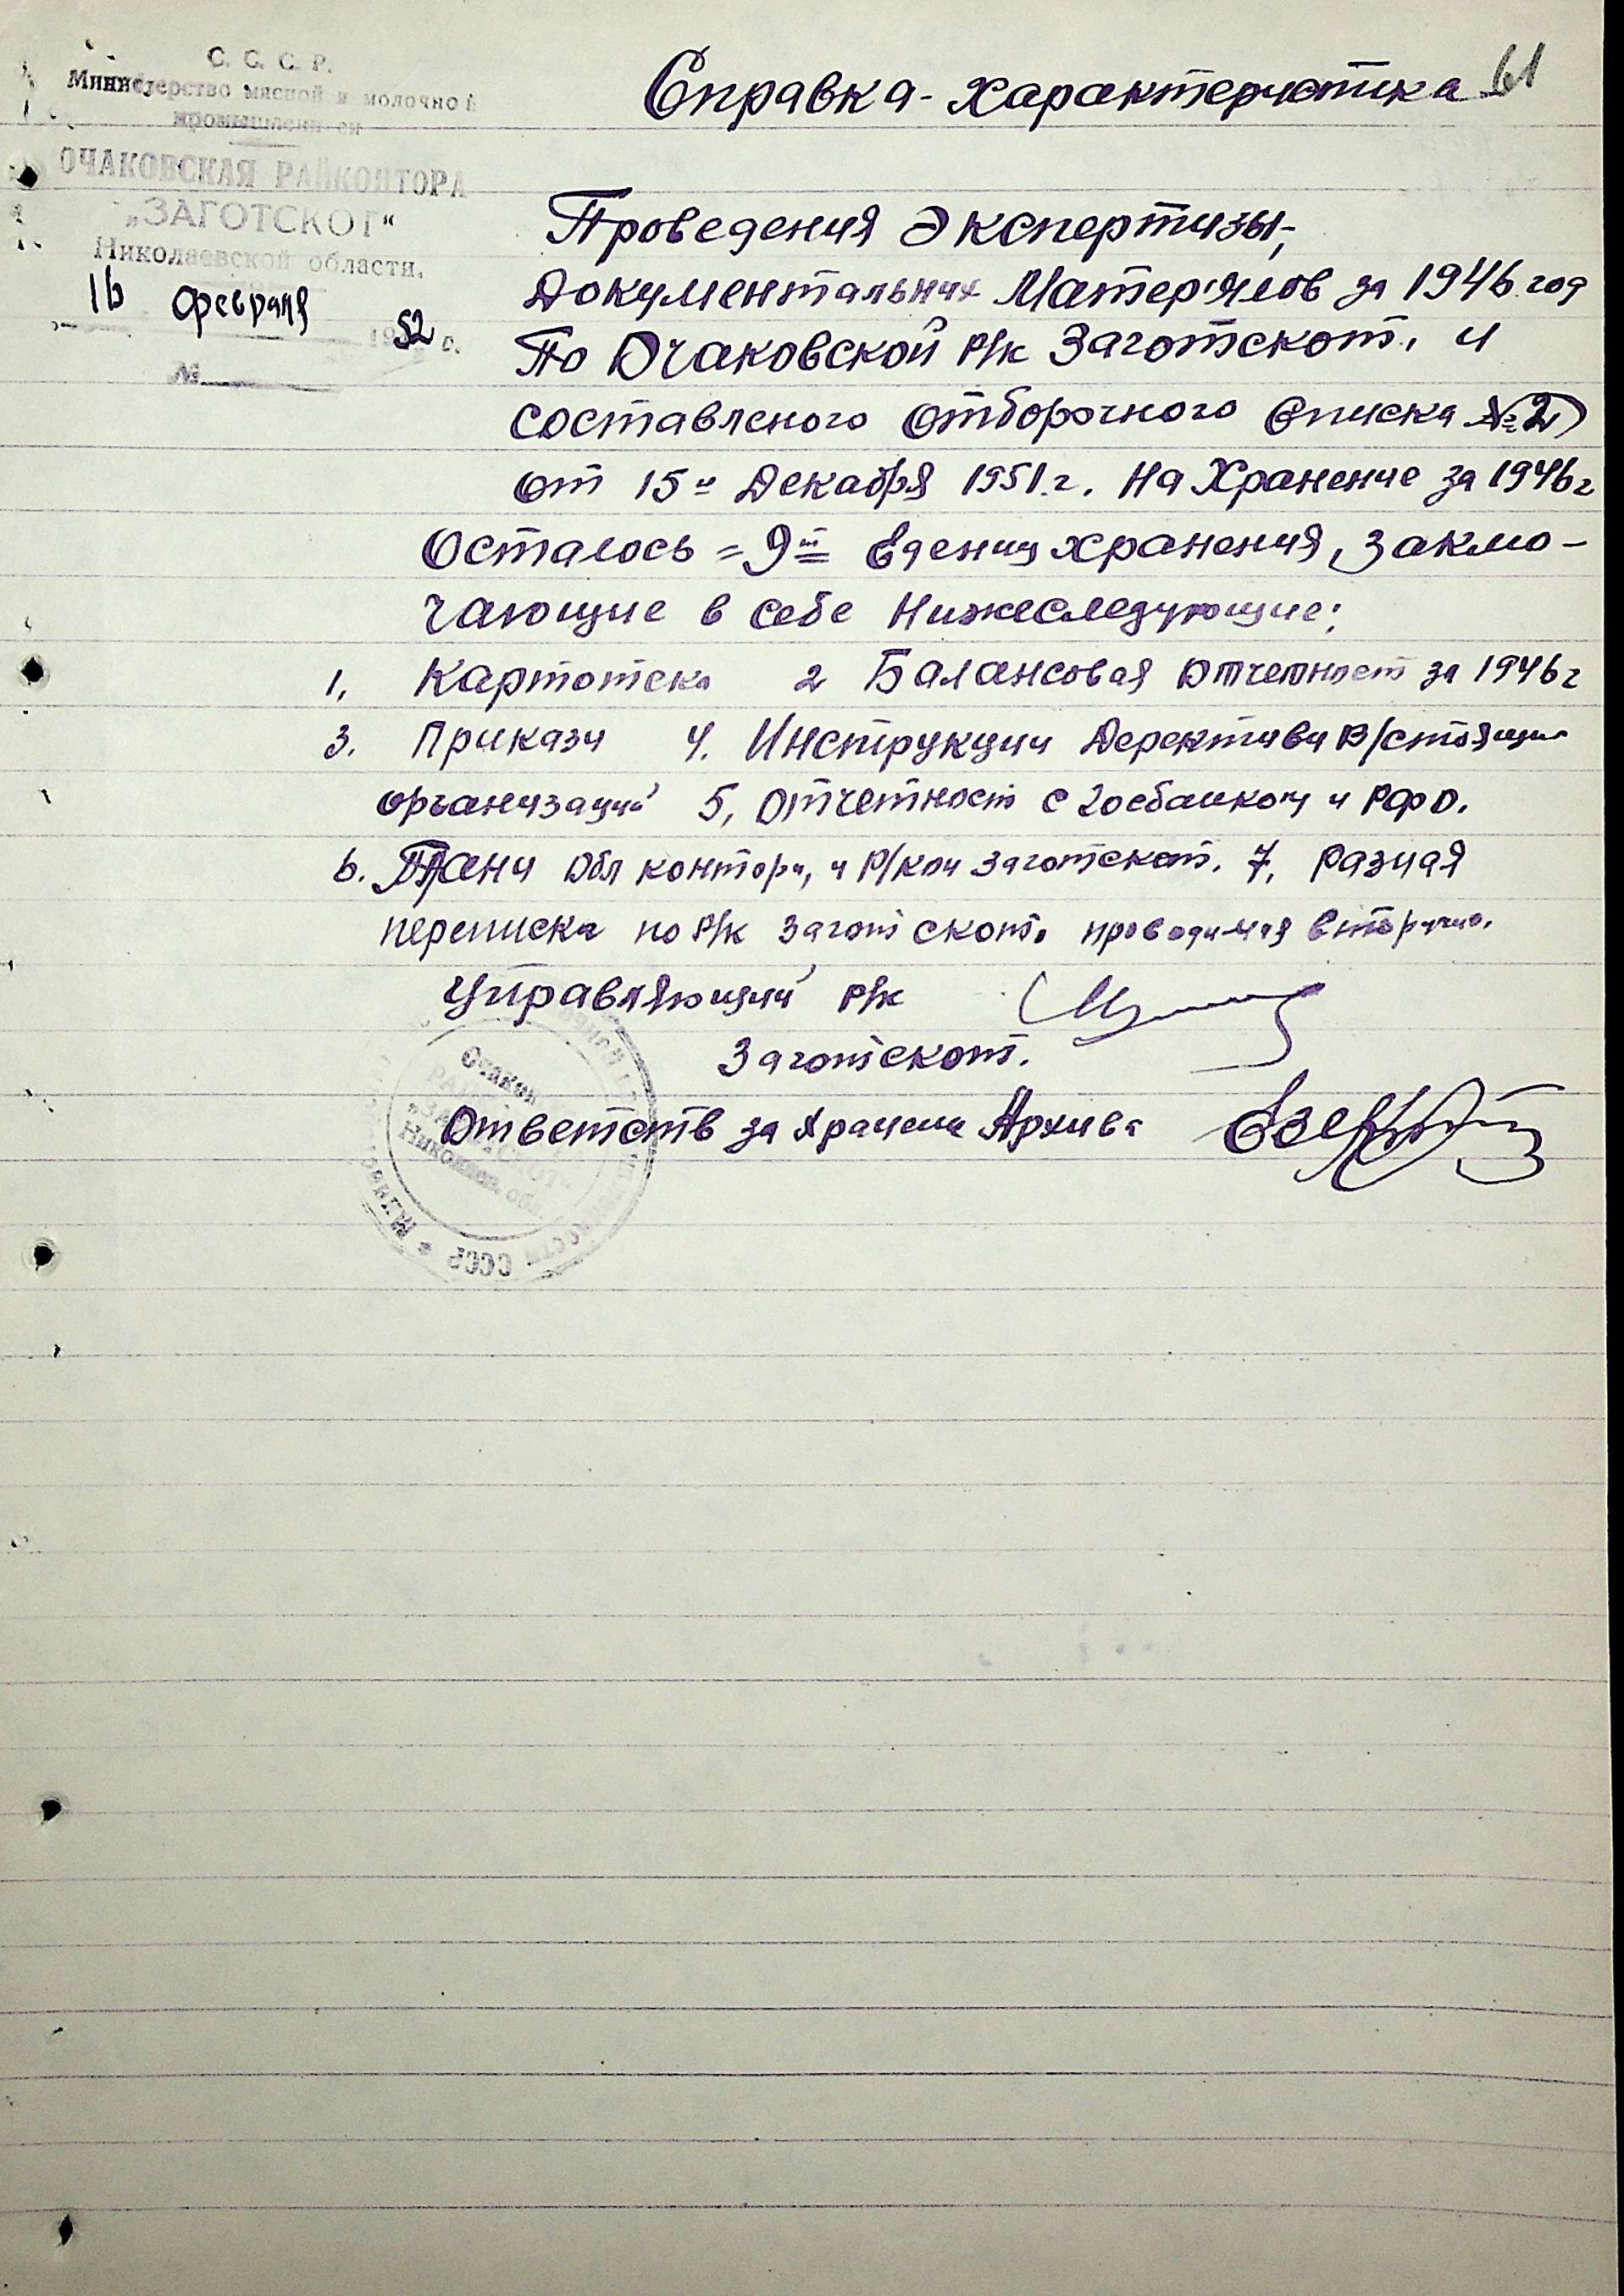 С. С. С. Р.
Министерство мясной и молочной
ОЧАКОВСКАЯ РАЙКОНТОРА
„ЗАГОТСКОТ“
Николаевской области.
16 февраля 1952 г.
№
61
Справка-характеристика
Проведения Экспертизы,
Документальних Матер'ялов за 1946 год
По Очаковской р/к Заготскот. и
составленого отборочного списка №2
от 15го Декабря 1951.г. На Хранение за 1946г
Осталось = 9ть Едениц хранения, заклю-
чающие в себе Нижеследующие:
1, Картотека 2 Балансовая Отчетност за 1946г
3. Прикази 4. Инструкции Дерективи В/стоящих
организаций 5, Отчетност с Госбанком и РФО.
6. Плани Обл контори, и Р/кои Заготскот. 7. Разная
переписка по Р/к Заготскот.
Управляющий Р/к
Заготскот.
Ответств за Хранени Архива
Очаков
Николаев. обл.
СССР